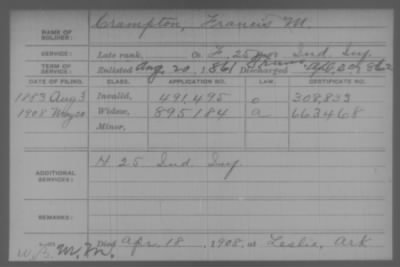 NAME OF SOLDIER: Crampton, Francis M.
SERVICE: Late rank, Co. F, 25 Ind. Inf.
TERM OF SERVICE: Enlisted Aug. 20, 1861 Discharged Apl. 20, 1862
DATE OF FILING. CLASS. APPLICATION NO. LAW. CERTIFICATE NO.
1883 Aug 3 Invalid, 491,495 308,833
1908 May Widow, 895184 a 663468
Minor,
ADDITIONAL SERVICES: H 25 Ind. Inf
REMARKS:
Died Apr. 18, 1908, at Leslie, Ark
W.B. M.M.